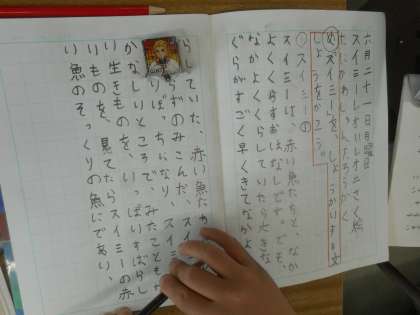 六月二十一日月曜日
スイミー レオ=レオニ さく絵
たにかわしゅんたろう やく
「スイミー」を、しょうかいする文
しょうをかこう。
①スイミーの
スイミーは、赤い魚たちと、なか
よくくらすおはなしです。でも、
なかよくくらしていたら大きな
ぐろがすごく早くきてなかよ
らしていた、赤い魚たち
のみこんだ、スイミ
りぼっちになり、
かなしいところで、みたことも
い生きものを、いっぱいすばらし
いものを、見てたらスイミーの赤
い魚のそっくりの魚にであい、